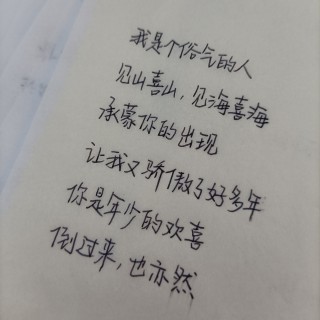 我是个俗气的人
见山喜山，见海喜海
承蒙你的出现
让我又骄傲了好多年
你是年少的欢喜
倒过来，也亦然